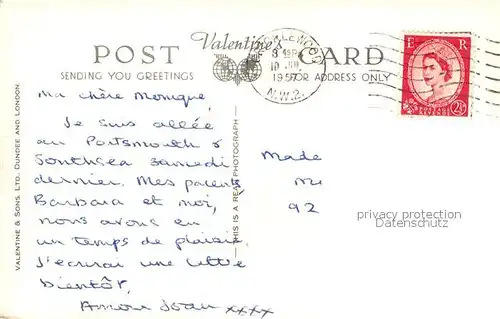 POST Valentine's CARD
SENDING YOU GREETINGS
FOR ADDRESS ONLY
CRICKLEWOOD
1957
N.W.2.
E R
2½
Ma chère Monique,
Je suis allée
au Portsmouth &
Southsea samedi
dernier. Mes parents
Barbara et moi,
nous avons eu
un temps de plaisir.
J'écrirai une lettre
bientôt.
Amour Joan xxxx
VALENTINE & SONS. LTD. DUNDEE AND LONDON
THIS IS A REAL PHOTOGRAPH
Made
92
privacy protection
Datenschutz